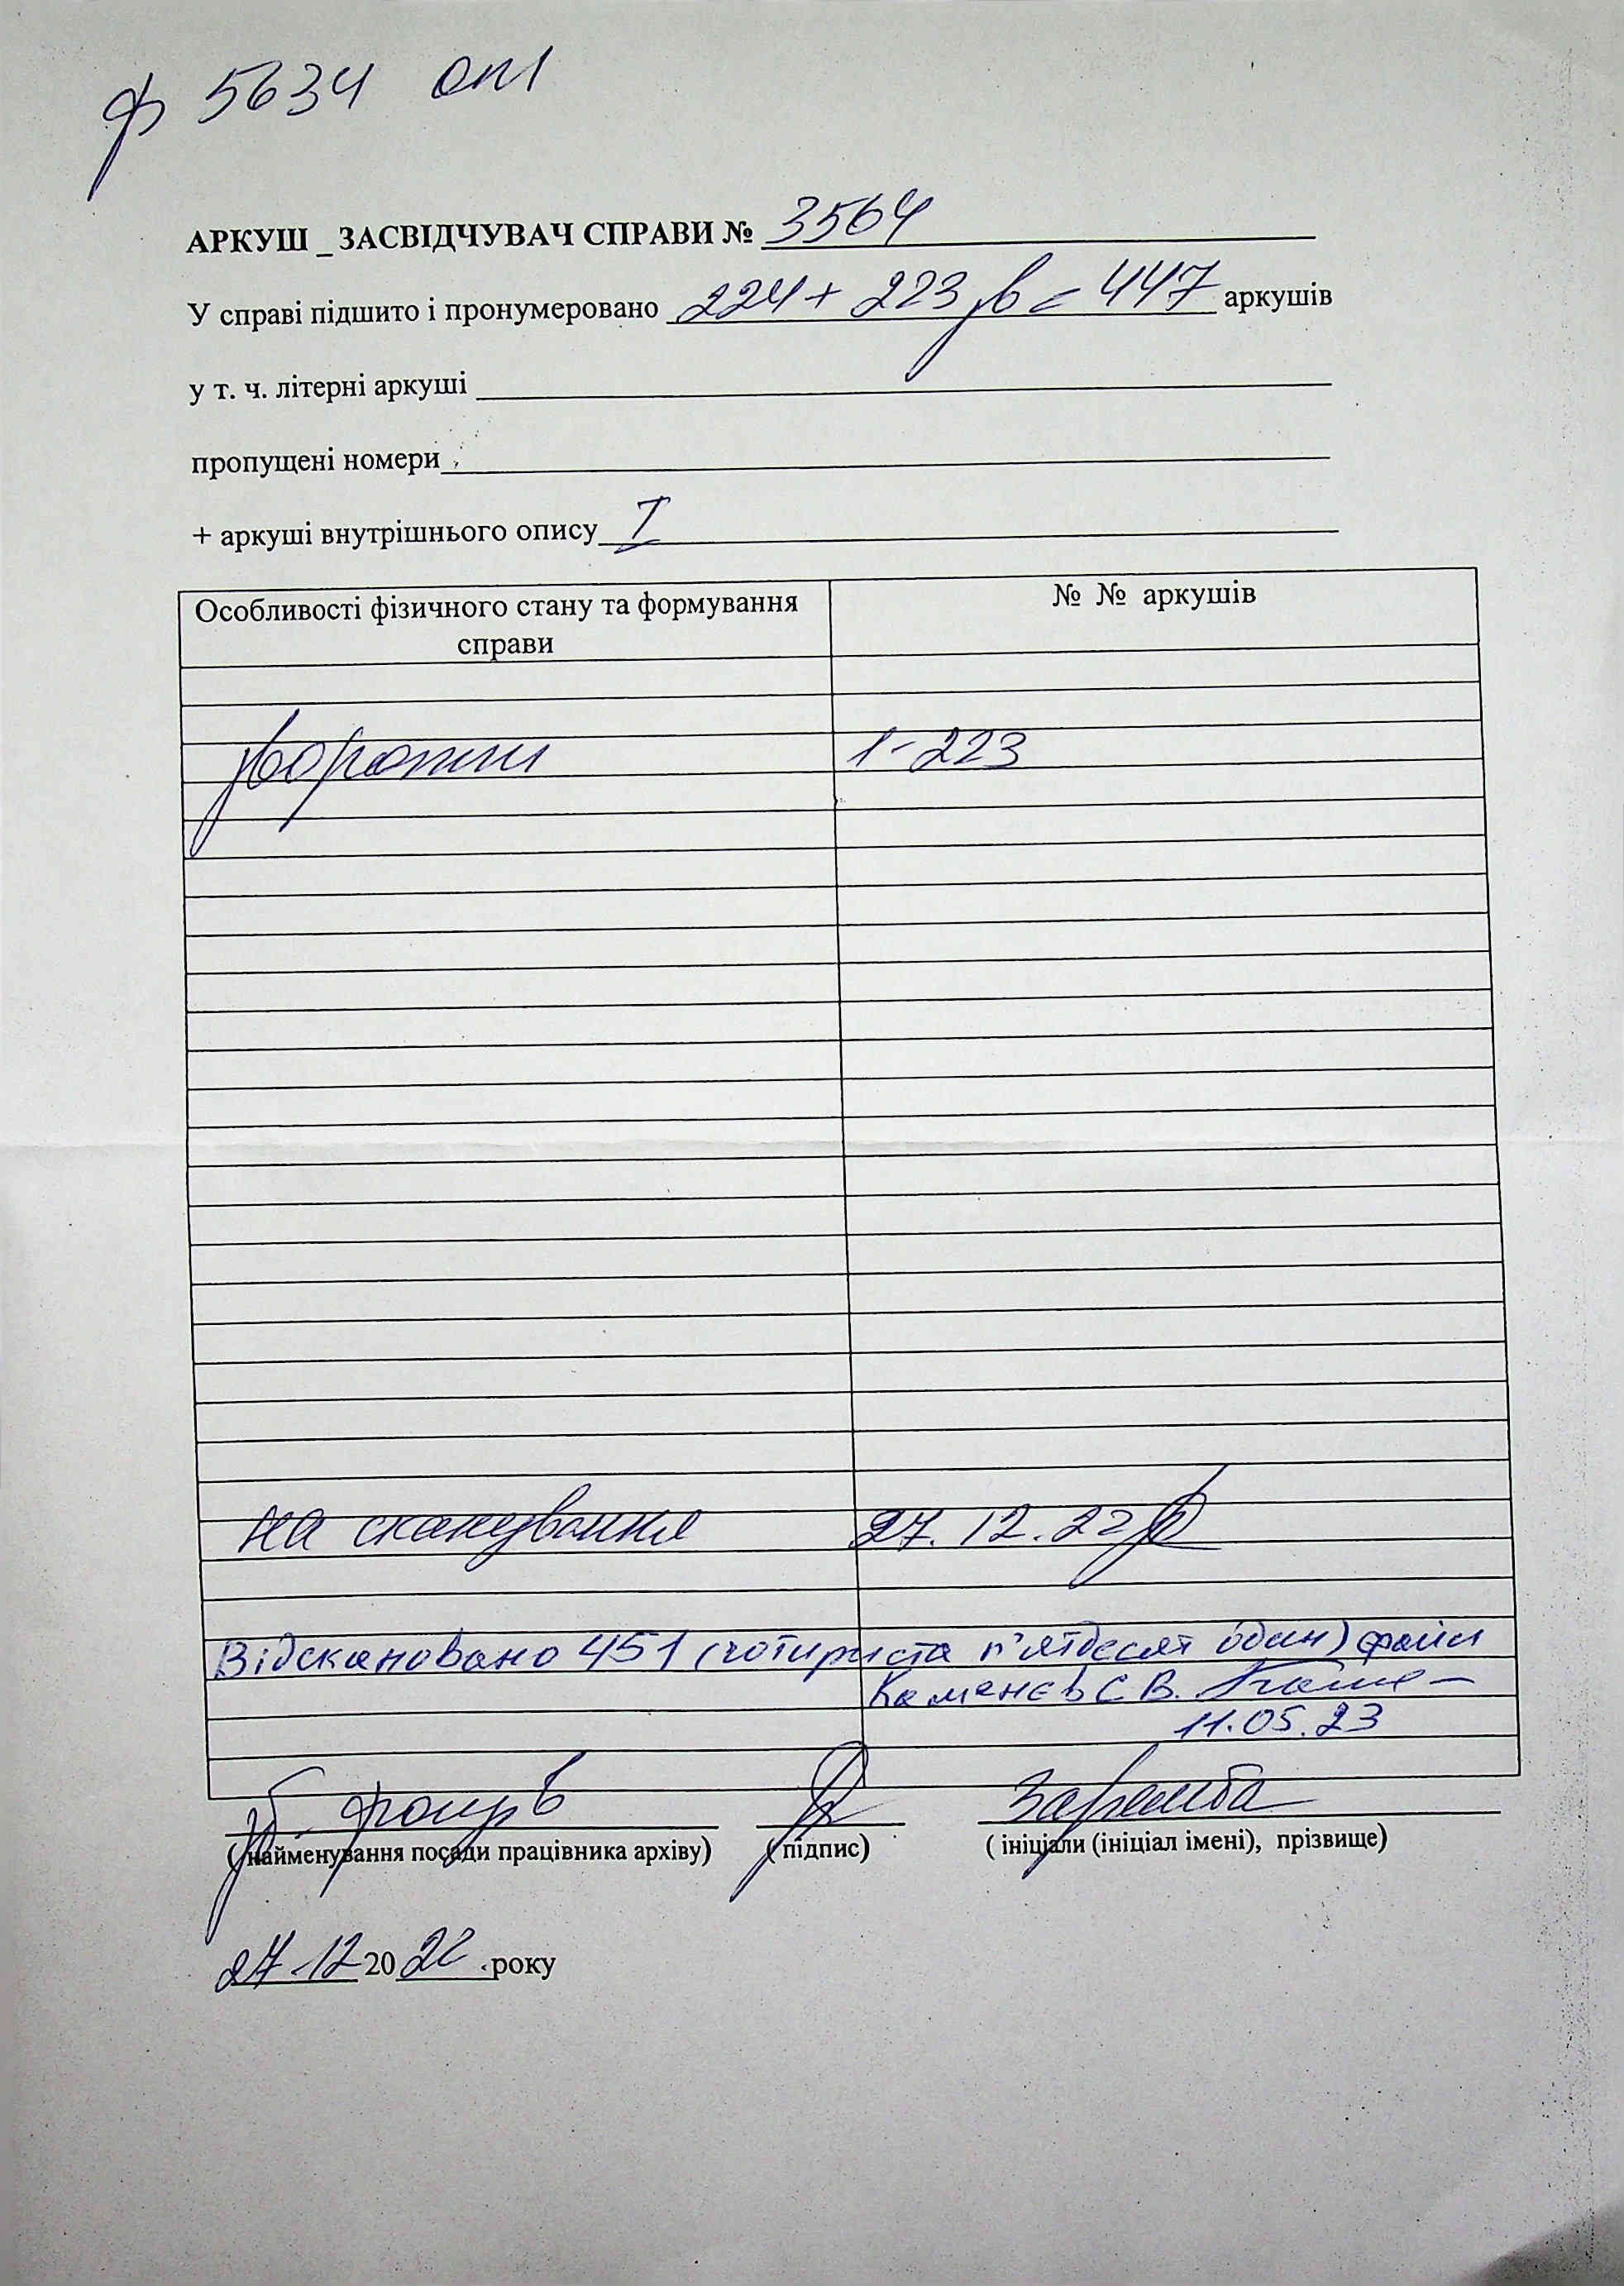 ф 5634 оп1
АРКУШ _ ЗАСВІДЧУВАЧ СПРАВИ № 3564
У справі підшито і пронумеровано 224 + 223 зв = 447 аркушів
у т. ч. літерні аркуші
пропущені номери
+ аркуші внутрішнього опису I
Особливості фізичного стану та формування справи
№ № аркушів
звороти 1-223
на сканування 27.12.22
Відскановано 451 (чотириста п'ятдесят один) файл
Каменєв С В.
11.05.23
Заремба
( найменування посади працівника архіву) ( підпис) ( ініціали (ініціал імені), прізвище)
27.12 2022 року